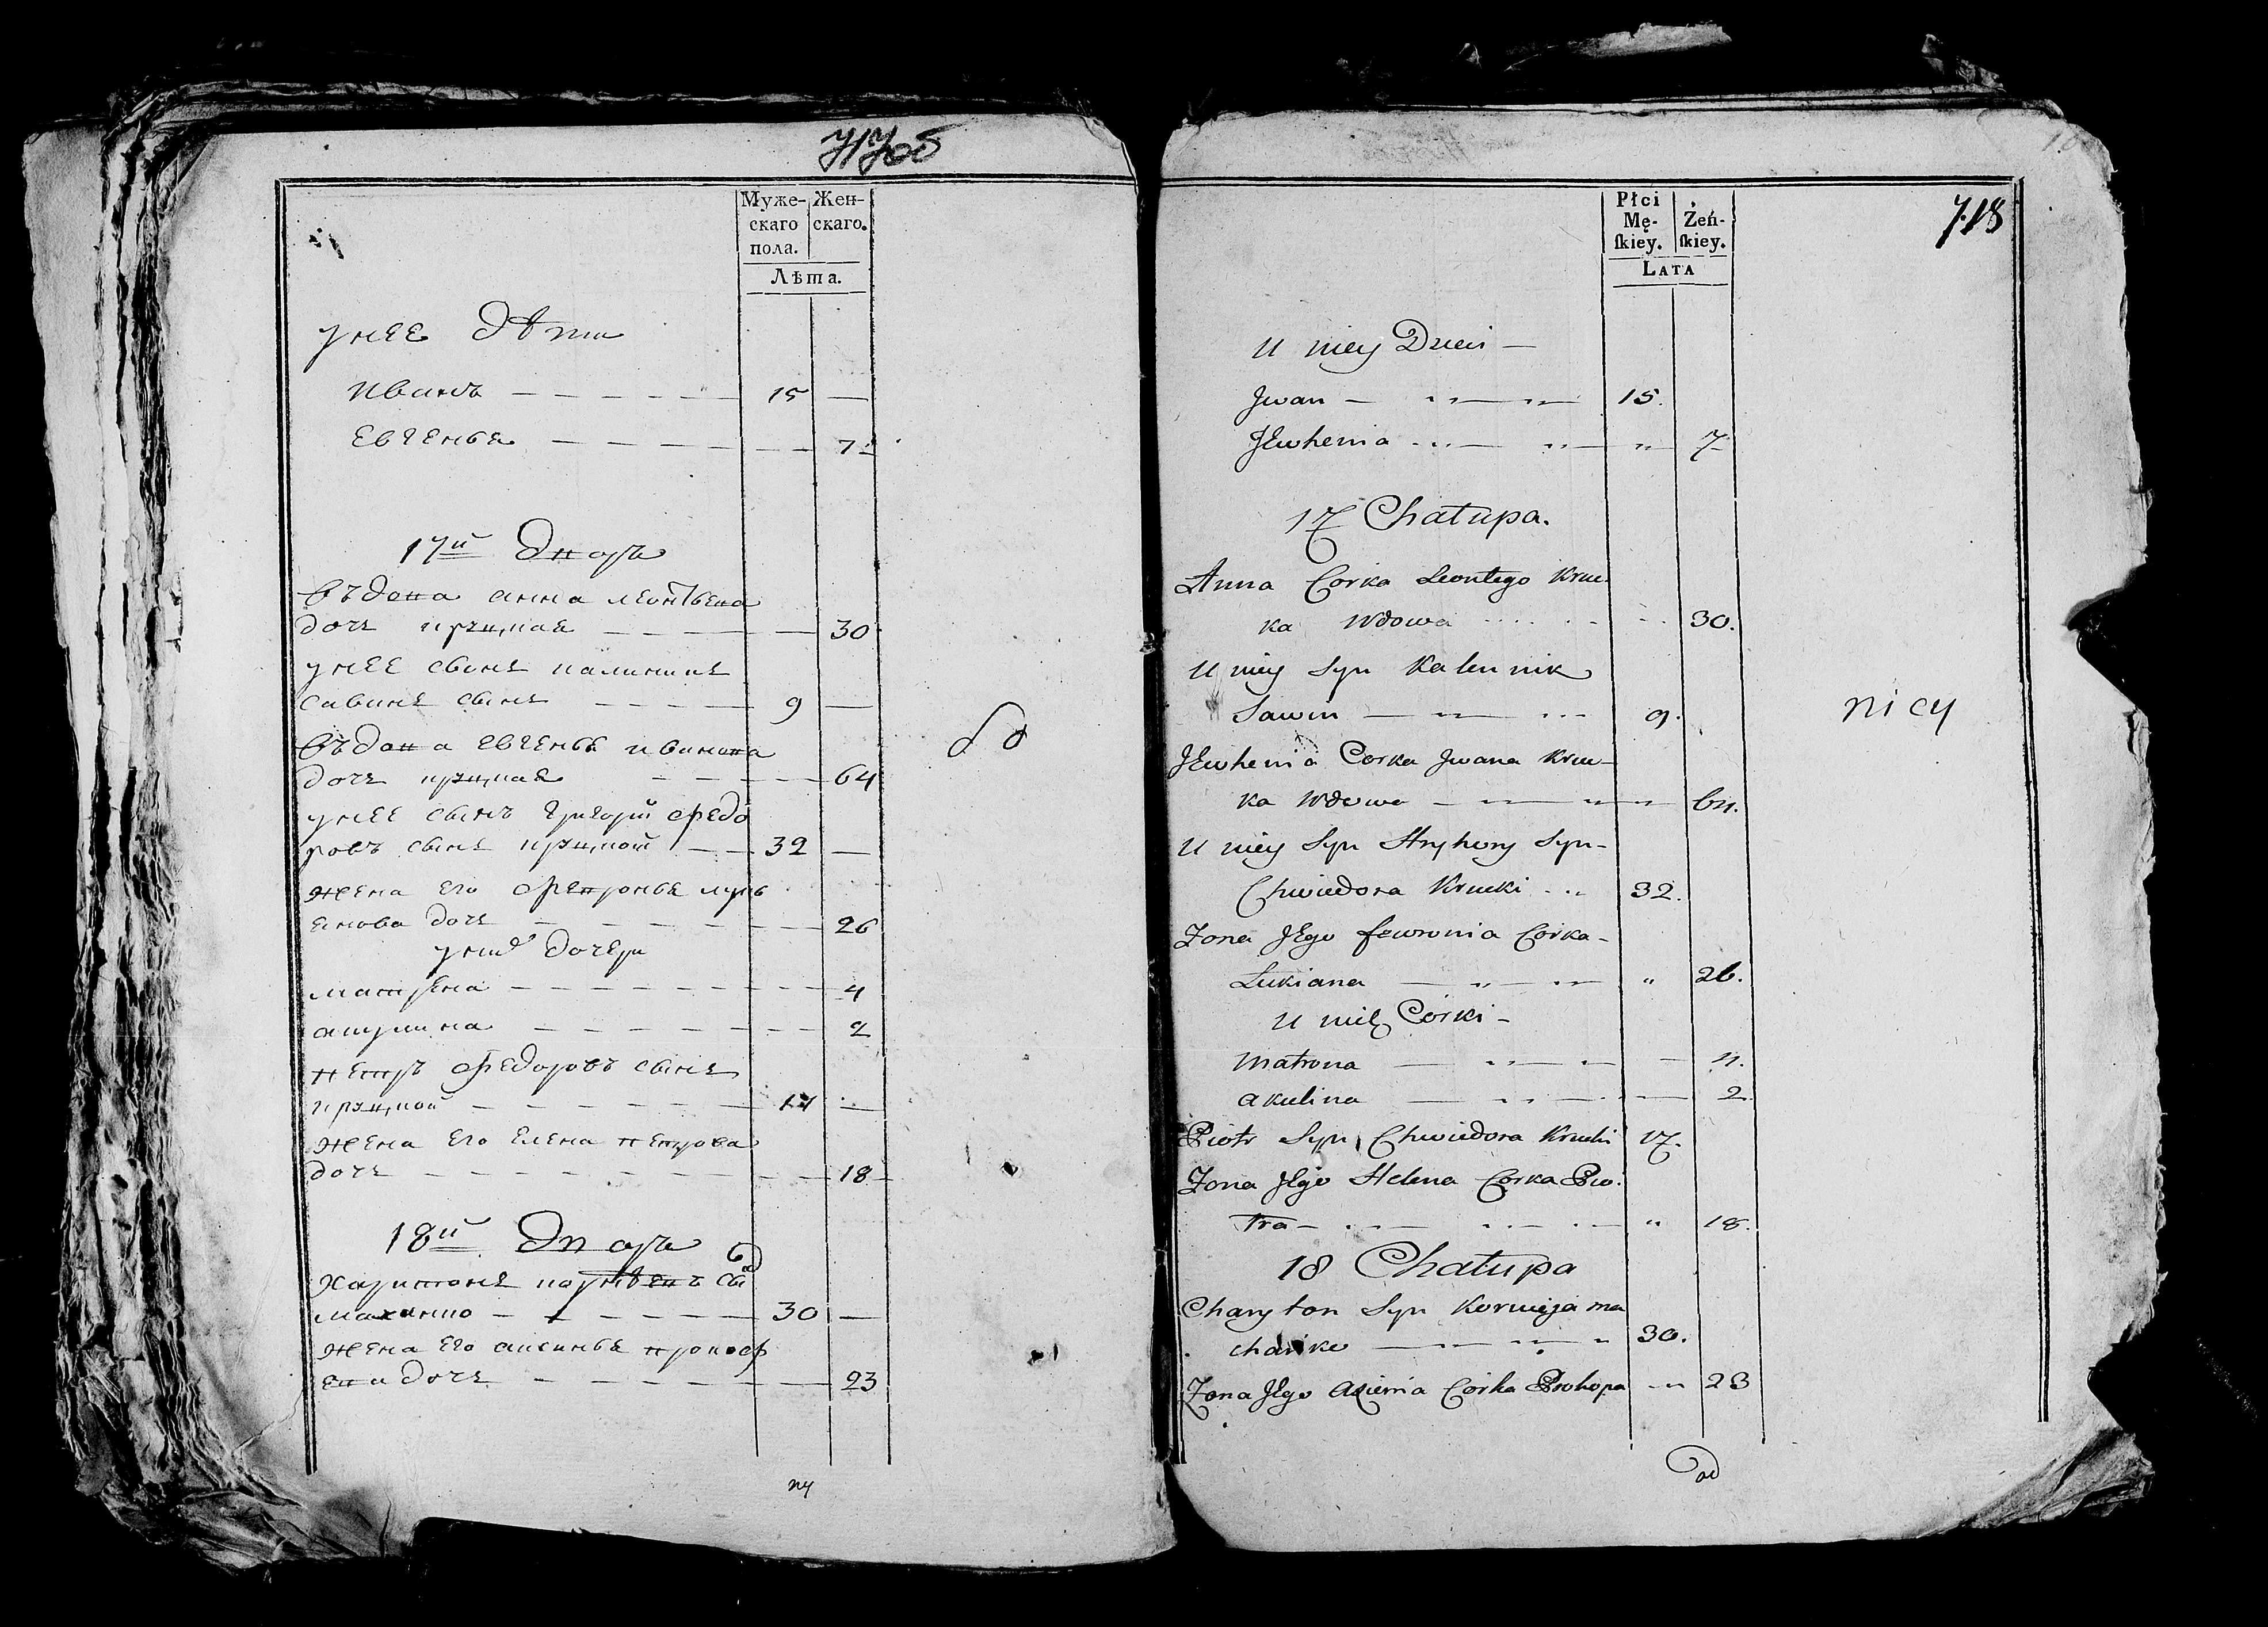 717об
Муже-
скаго
пола.
Жен-
скаго.
Лѣта.
у нее дѣти
иванъ 15
евгенья 7
17й дворъ
въдова анна леонтьева
дочь круцкая 30
у нее сынъ калиникъ
савинъ сынъ 9
въдова евгенья иванова
дочь круцкая 64
у нее сынъ григорий федо
ровъ сынъ круцкой 32
жена его февронья лукь
янова дочь 26
у них дочери
матрена 4
акулина 2
петръ федоровъ сынъ
круцкой 17
жена его елена петрова
дочь 18
18й дворъ
харитонъ корнѣевъ сы
маханко 30
жена его аксинья прокоф
ева дочь 23
718
Płci
Mę-
ſkiey.
Żeń-
ſkiey.
LATA
U niey Dzieci
Jwan 15.
JEwhenia 7
17 Chałupa.
Anna Corka Leontego Kruc
ka Wdowa 30.
U niey Syn Kalennik
Sawin 9.
JEwhenia Corka Jwana Kruc-
ka Wdowa 64.
U niey Syn Hryhory Syn-
Chwiedora Krucki 32.
Zona JEgo fewronia Corka-
Lukiana 26.
U nich Córki-
Matrona 4.
akulina 2
Piotr Syn Chwiedora Krucki 17.
Zona JEgo Helena Corka Pio.
tra 18.
18 Chałupa
Charyton Syn Kornieja ma
chańko 30.
Zona JEgo Axienia Corka Prokopa 23